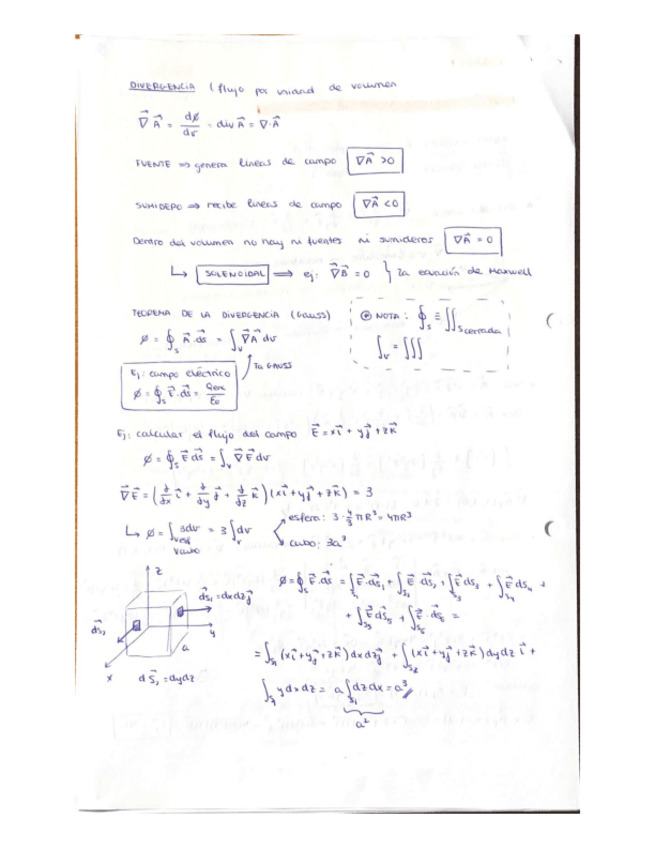 DIVERGENCIA ( flujo por unidad de volumen
∇⃗ A⃗ = dφ/dv = div A⃗ = ∇·A⃗
FUENTE ⇒ genera líneas de campo ∇A⃗ > 0
SUMIDERO ⇒ recibe líneas de campo ∇A⃗ < 0
Dentro del volumen no hay ni fuentes ni sumideros ∇A⃗ = 0
↳ SOLENOIDAL ⇒ ej: ∇⃗B⃗ = 0 } 2a ecuación de Maxwell
TEOREMA DE LA DIVERGENCIA (GAUSS)
φ = ∮s A⃗·ds⃗ = ∫v ∇⃗A⃗ dv
Ta GAUSS
NOTA: ∮s ≡ ∬s cerrada
∫v = ∭
Ej: campo eléctrico
φ = ∮s E⃗·ds⃗ = Qenc/ε0
Ej: calcular el flujo del campo E⃗ = xi⃗ + yj⃗ + zk⃗
φ = ∮s E⃗ ds⃗ = ∫v ∇⃗E⃗ dv
∇⃗E⃗ = (d/dx i⃗ + d/dy j⃗ + d/dz k⃗)(xi⃗ + yj⃗ + zk⃗) = 3
↳ φ = ∫ 3dv = 3∫v dv
esfera: 3·4/3 πR³ = 4πR³
cubo: 3a³
z
ds⃗1 = dxdzj⃗
ds⃗2
y
a
x
dS⃗2 = dydz
φ = ∮s E⃗·ds⃗ = ∫s1 E⃗·ds⃗1 + ∫s2 E⃗·ds⃗2 + ∫s3 E⃗ds⃗3 + ∫s4 E⃗ds⃗4 +
+ ∫s5 E⃗ds⃗5 + ∫s6 E⃗·ds⃗6 =
= ∫s1 (xi⃗ + yj⃗ + zk⃗) dxdzj⃗ + ∫s2 (xi⃗ + yj⃗ + zk⃗) dydz i⃗ +
∫s1 y dxdz = a ∫s1 dzdx = a³
a²